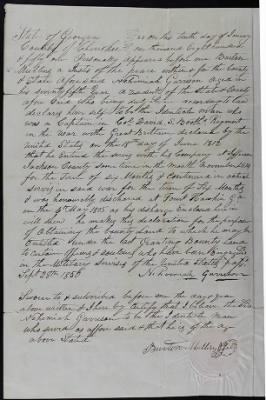 State of Georgia
County of Cherokee On this tenth day of January
one thousand eight hundred
& fifty one Personally appeared before me Burton
Mullins a Justis of the peace within & for the County
& State aforesaid Nehemiah Garrison aged in
his seventy fifth year a resident of the State & County
afore said who being duly sworn according to law
declares himself to be the Identical man who
was a Captain in Col David S. Booth Regiment
in the War with Great Britain declared by the
United States on the 18th day of June 1812
that he entered the Army with his Company at Jefferson
Jackson County some time in the month
for the Term of six Months & continued in actual
service in said war for the term of Six Months
& was honourably discharged at Fort Hawkins Ga
on the day 1815 as his discharge
will show he makes this declaration for the purpose
of obtaining the bounty Land to which he may be
entitled under the act granting Bounty Land
to certain officers & soldiers who have been Engaged
in the Military Service of the United States passed
Sept 28th 1850
Nehemiah Garrison
Sworn to & subscribed before me the day & year
above written & I here by certify that I believe the said
Nehemiah Garrison to be the Identical man
who served as afore said & that he is of the age
above Stated
Burton Mullins